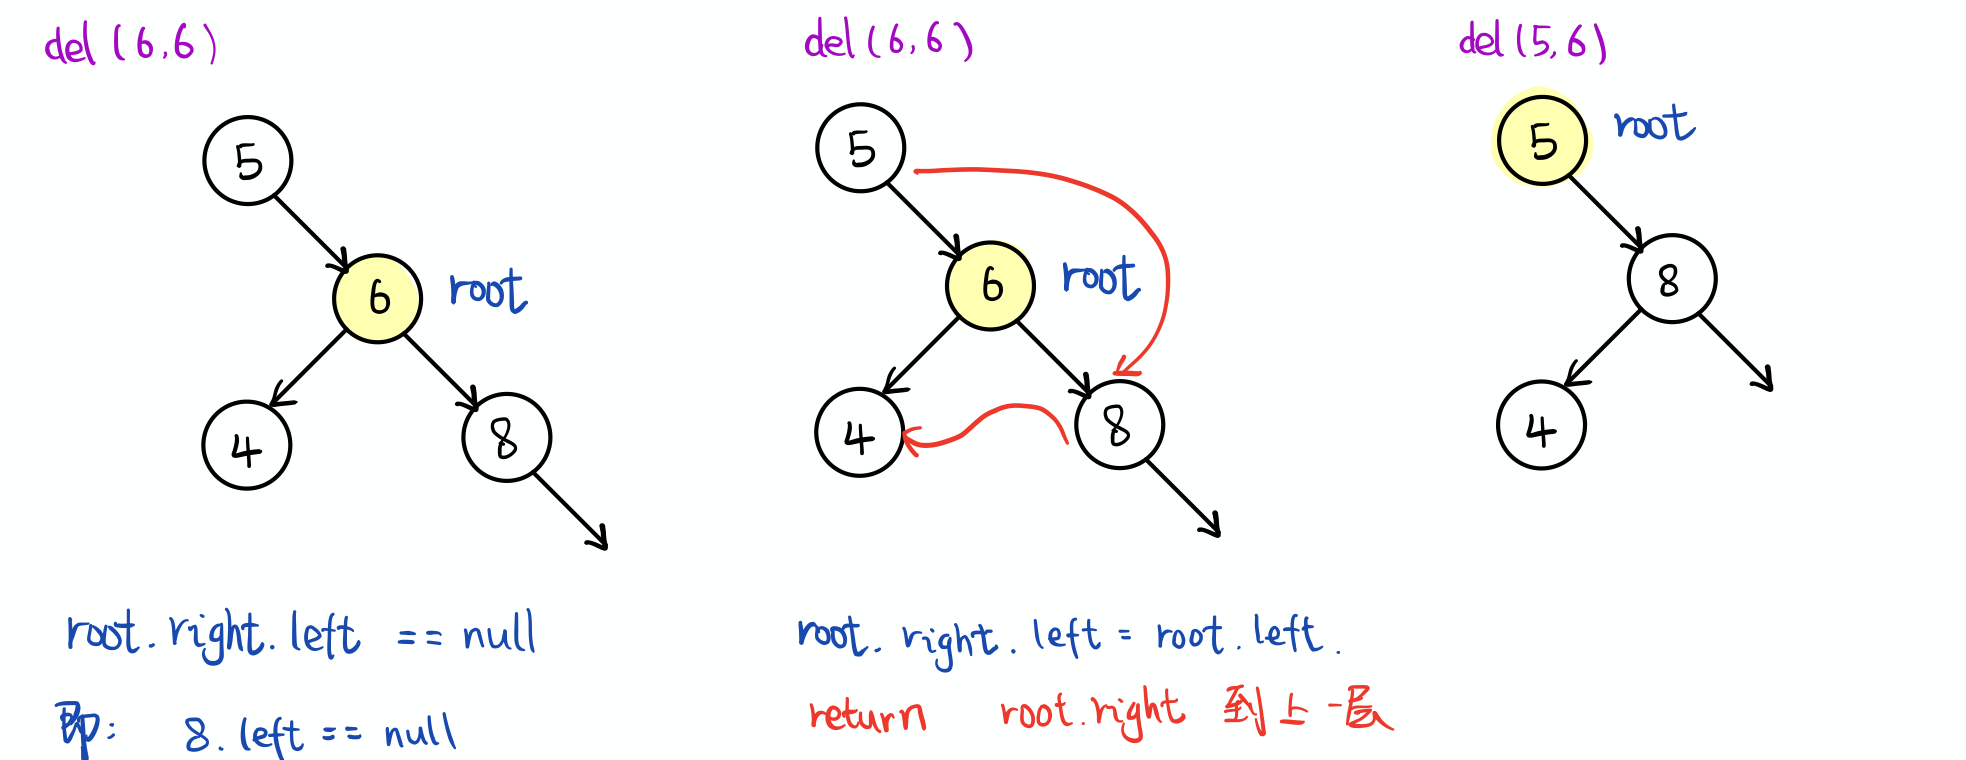 del (6,6)
5
6 root
4
8
root.right.left == null
即: 8.left == null
del (6,6)
5
6 root
4
8
root.right.left = root.left.
return root.right 到上一层
del (5,6)
5 root
8
4